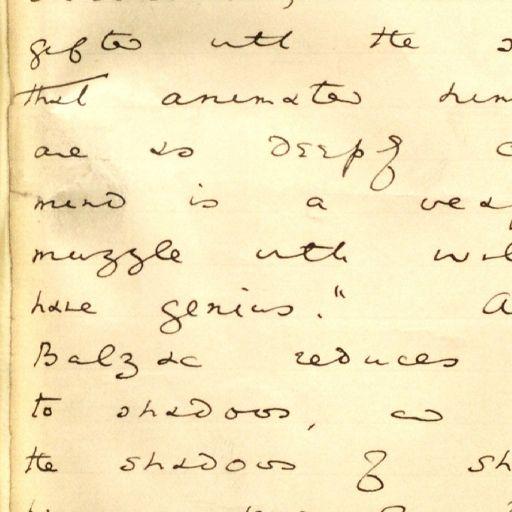 gifted with the
that animated him
are as deeply
mind is a weap
muzzle with wil
have genius." A
Balzac reduces
to shadows, and
the shadows of sh